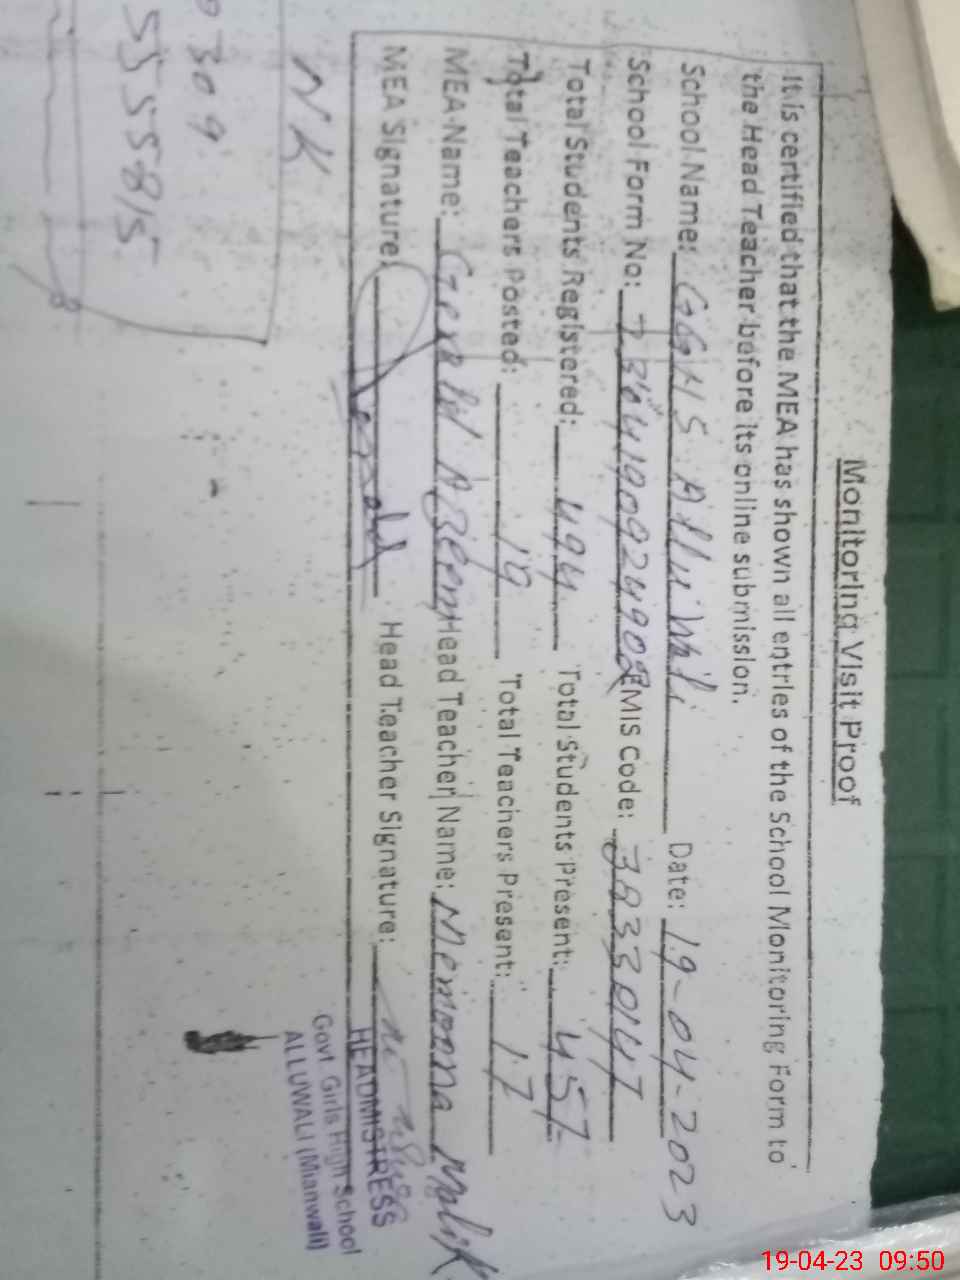 Monitoring Visit Proof
It is certified that the MEA has shown all entries of the School Monitoring Form to
the Head Teacher before its online submission.
School Name: GGHS Alluwali Date: 19-04-2023
School Form No: EMIS Code: 38330147
Total Students Registered: 494 Total Students Present: 457
Total Teachers Posted: 19 Total Teachers Present: 17
MEA Name: Head Teacher Name: Memoona Malik
MEA Signature: Head Teacher Signature:
HEADMISTRESS
Govt Girls High School
ALLUWALI (Mianwali)
NK
309
5555815
19-04-23 09:50